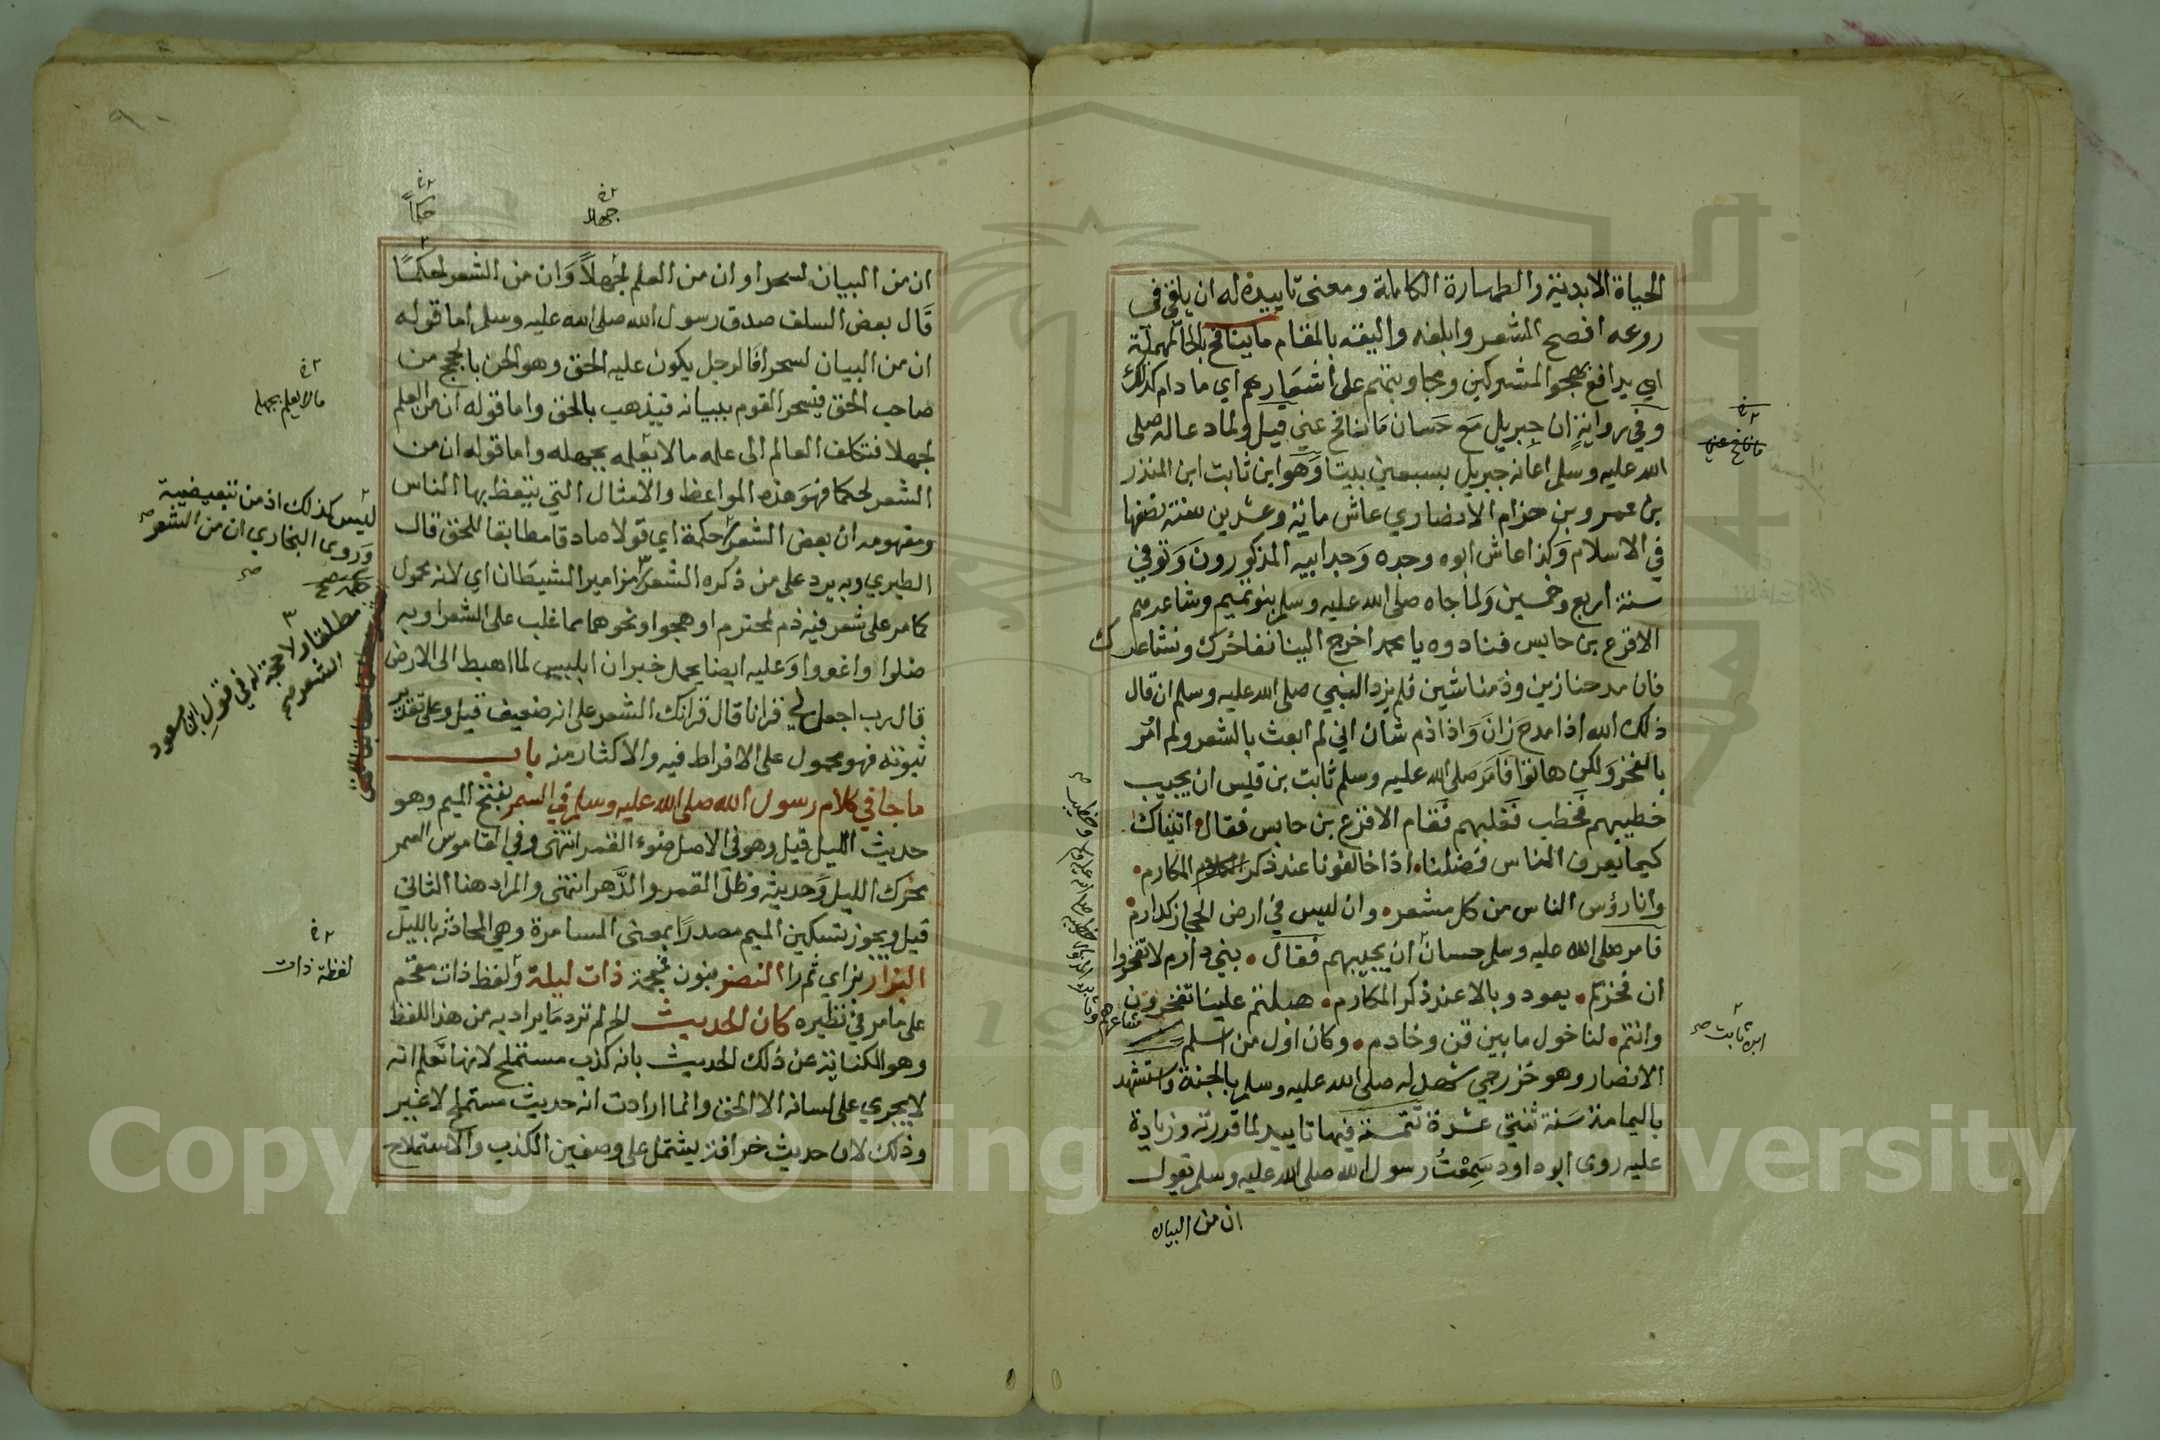 الحياة الابدية والطهارة الكاملة ومعنى تاييده له ان يلقي في
روعه افصح الشعر وابلغه واليقه بالمقام ما ينافح بالحا المهملة
اي يدافع بهجو المشركين ومجاوبتهم على اشعارهم اي ما دام كذلك
وفي رواية ان جبريل مع حسان ما نافح عني قيل ولما دعا له صلى
الله عليه وسلم اعانه جبريل بسبعين بيتا وهو ابن ثابت ابن المنذر
بن عمرو بن حزام الانصاري عاش ماية وعشرين سنة نصفها
في الاسلام وكذا عاش ابوه وجده وجد ابيه المذكورون وتوفي
سنة اربع وخمسين ولما جاه صلى الله عليه وسلم بنو تميم وشاعرهم
الاقرع بن حابس فنادوه يا محمد اخرج الينا نفاخرك ونشاعرك
فان مدحنا زين وذمنا شين فلم يزد النبي صلى الله عليه وسلم ان قال
ذلك الله اذا مدح زان واذا ذم شان اني لم ابعث بالشعر ولم اُمر
بالفخر ولكن هاتوا فامر صلى الله عليه وسلم ثابت بن قيس ان يجيب
خطيبهم فخطب فغلبهم فقام الاقرع بن حابس فقال اتيناك
كيما يعرف الناس فضلنا اذا خالفونا عند ذكر المكارم
وانا رؤس الناس من كل مشعر وان ليس في ارض الحجاز كدارم
فامر صلى الله عليه وسلم حسان ان يجيبهم فقال بني دارم لا تفخروا
ان فخركم يعود وبالا عند ذكر المكارم هبلتم علينا تفخرون
وانتم لنا خول ما بين قن وخادم وكان اول من اسلم
شاعرهم
الانصار وهو خزرجي شهد له صلى الله عليه وسلم بالجنة واستشهد
باليمامة سنة ثنتي عشرة تتمة فيها تاييد لما قررته وزيادة
عليه روى ابو داود سَمِعْتُ رسول الله صلى الله عليه وسلم يقول
ان من البيان
ما نافح عني
ابن ثابت صح
جهلا
حكماً
ان من البيان لسحرا وان من العلم لجهلاً وان من الشعر لحكمًا
قال بعض السلف صدق رسول الله صلى الله عليه وسلم اما قوله
ان من البيان لسحرا فالرجل يكون عليه الحق وهو الحن بالحجج من
صاحب الحق فيسحر القوم ببيانه فيذهب بالحق واما قوله ان من العلم
لجهلا فتكلف العالم الى علمه ما لا يعلمه بجهله واما قوله ان من
الشعر لحكما فهو هذه المواعظ والامثال التي يتعظ بها الناس
ومفهومه ان بعض الشعر حكمة اي قولا صادقا مطابقا للحق قال
الطبري وبه يرد على من ذكره الشعر مزامير الشيطان اي لانه محمول
كما مر على شعر فيه ذم لمحترم او هجو او نحوهما مما غلب على الشعرا وبه
ضلوا واغووا وعليه ايضا يحمل خبر ان ابليس لما اهبط الى الارض
قال رب اجعل لي قرانا قال قرانك الشعر على انه ضعيف قيل وعلى تقدير
ثبوته فهو محمول على الافراط فيه والاكثار منه باب
ما جا في كلام رسول الله صلى الله عليه وسلم في السمر بفتح الميم وهو
حديث الليل قيل وهو في الاصل ضوء القمر انتهى وفي القاموس السمر
محرك الليل وحديثه وظل القمر والدَّهر انتهى والمراد هنا الثاني
قيل ويجوز تسكين الميم مصدرًا بمعنى المسامرة وهي المحادثة بالليل
البزار بزاي ثم را النضر بنون فمعجمة ذات ليلة ولفظ ذات مقحم
على ما مر في نظيره كان الحديث الخ لم ترد ما يراد به من هذا اللفظ
وهو الكناية عن ذلك الحديث بانه كذب مستملح لانها تعلم انه
لا يجري على لسانه الا الحق وانما ارادت انه حديث مستملح لا غير
وذلك لان حديث خرافة يشتمل على وصفين الكذب والاستملاح
ما لا يعلم بجهله
ليس كذلك اذ من تبعيضية
وروى البخاري ان من الشعر
حكمة صح
مطلقا ولا حجة له في قول ابن مسعود
الشعر صح
لفظة ذات
Copyright © King Saud University